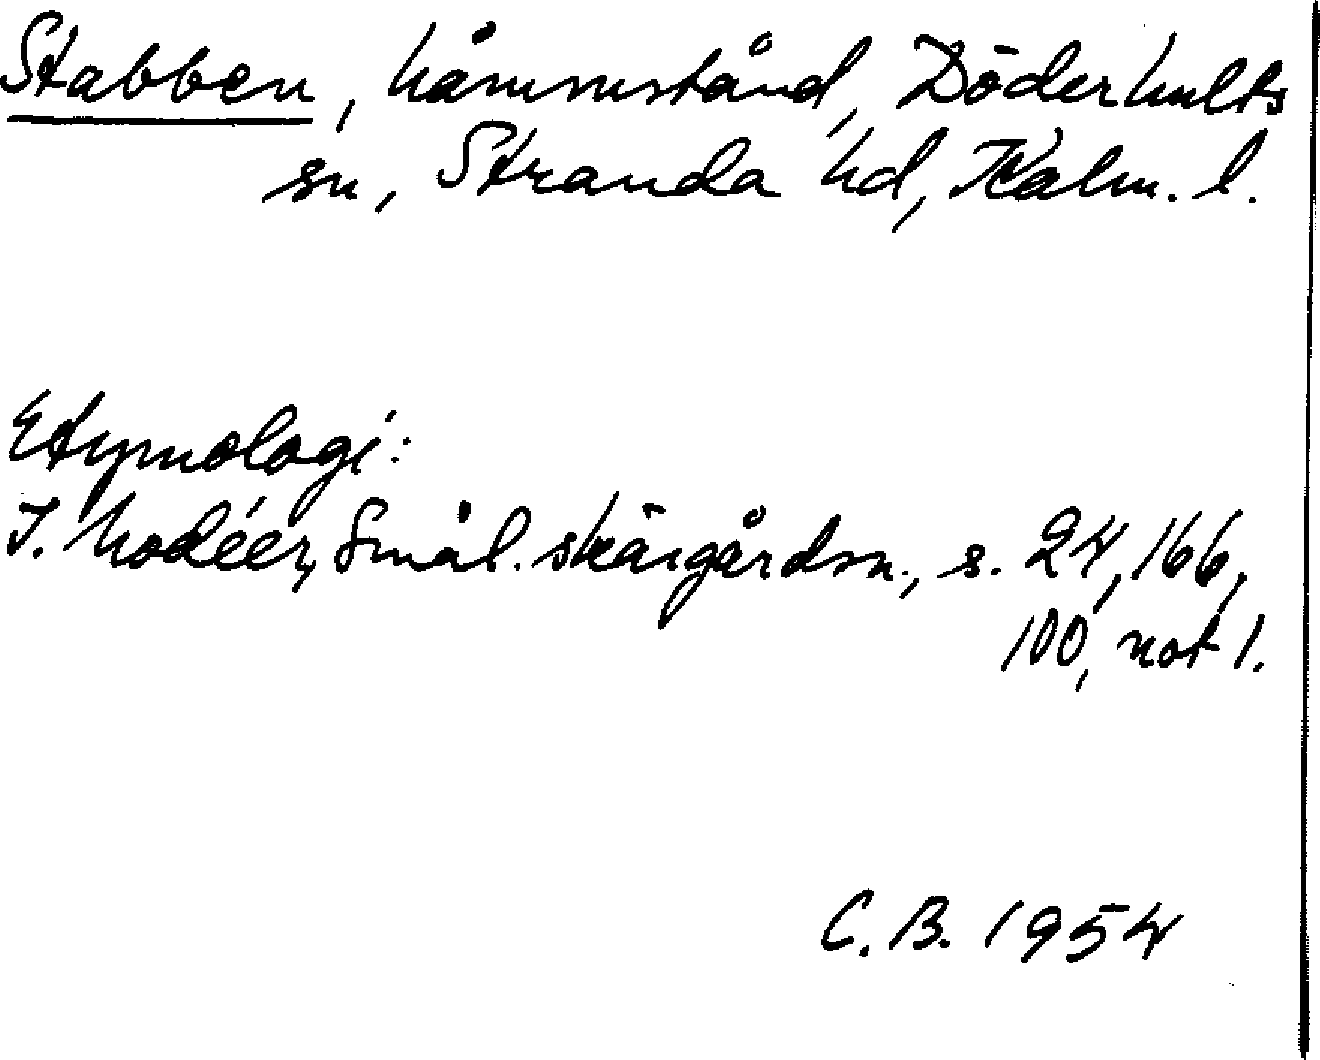 Stabben, håmmstånd, Döderhults
sn, Stranda hd, Kalm. l.
Etymologi:
I. Modéer, Smål. skärgårdsn., s. 24, 166,
100, not 1.
C. B. 1954